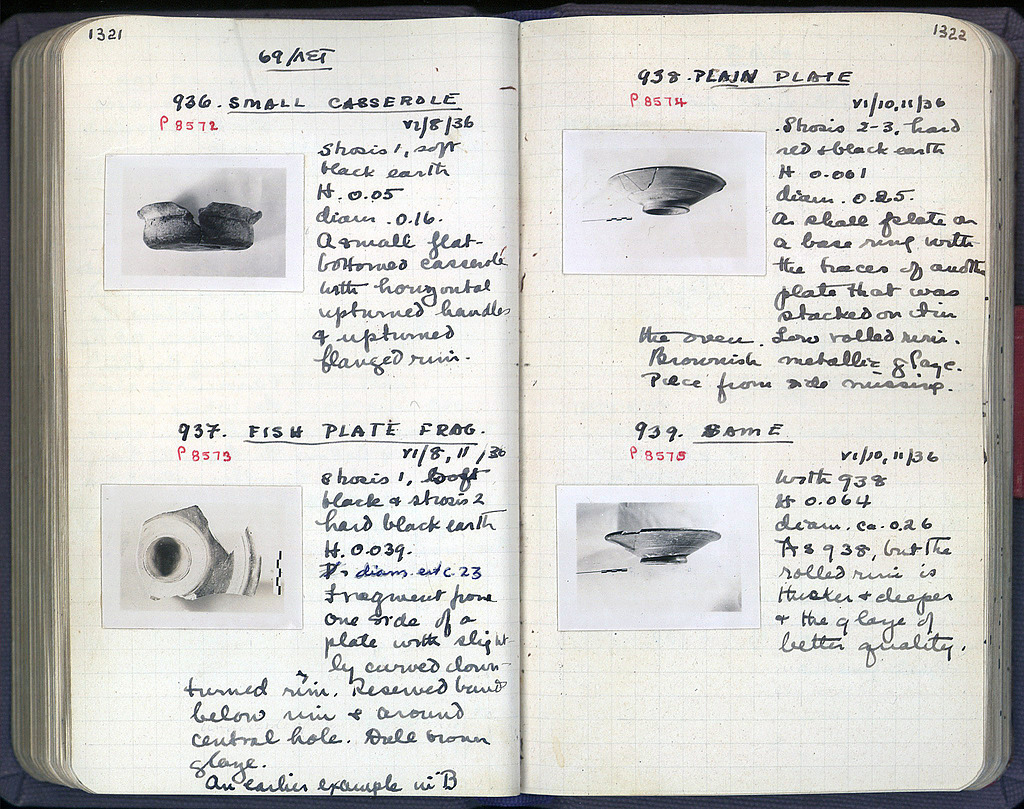 1321
69/ΛΣΤ
936. SMALL CASSEROLE
P 8572
VI/8/36
Strosis 1, soft
black earth
H. 0.05
diam. 0.16.
A small flat-
bottomed casserole
with horizontal
upturned handles
& upturned
flanged rim.
937. FISH PLATE FRAG.
P 8573
VI/8, 11/36
Strosis 1, soft
black & strosis 2
hard black earth
H. 0.039.
diam. est. .23
Fragment from
one side of a
plate with slight
ly curved down-
turned rim. Reserved band
below rim & around
central hole. Dull brown
glaze.
An earlier example in B
1322
938. PLAIN PLATE
P 8574
VI/10, 11/36
Strosis 2-3, hard
red & black earth
H 0.061
diam. 0.25.
A small plate on
a base ring with
the traces of another
plate that was
stacked on it in
the oven. Low rolled rim.
Brownish metallic glaze.
Piece from side missing.
939. SAME
P 8575
VI/10, 11/36
With 938
H 0.064
diam. ca. 0.26
As 938, but the
rolled rim is
thicker & deeper
& the glaze of
better quality.